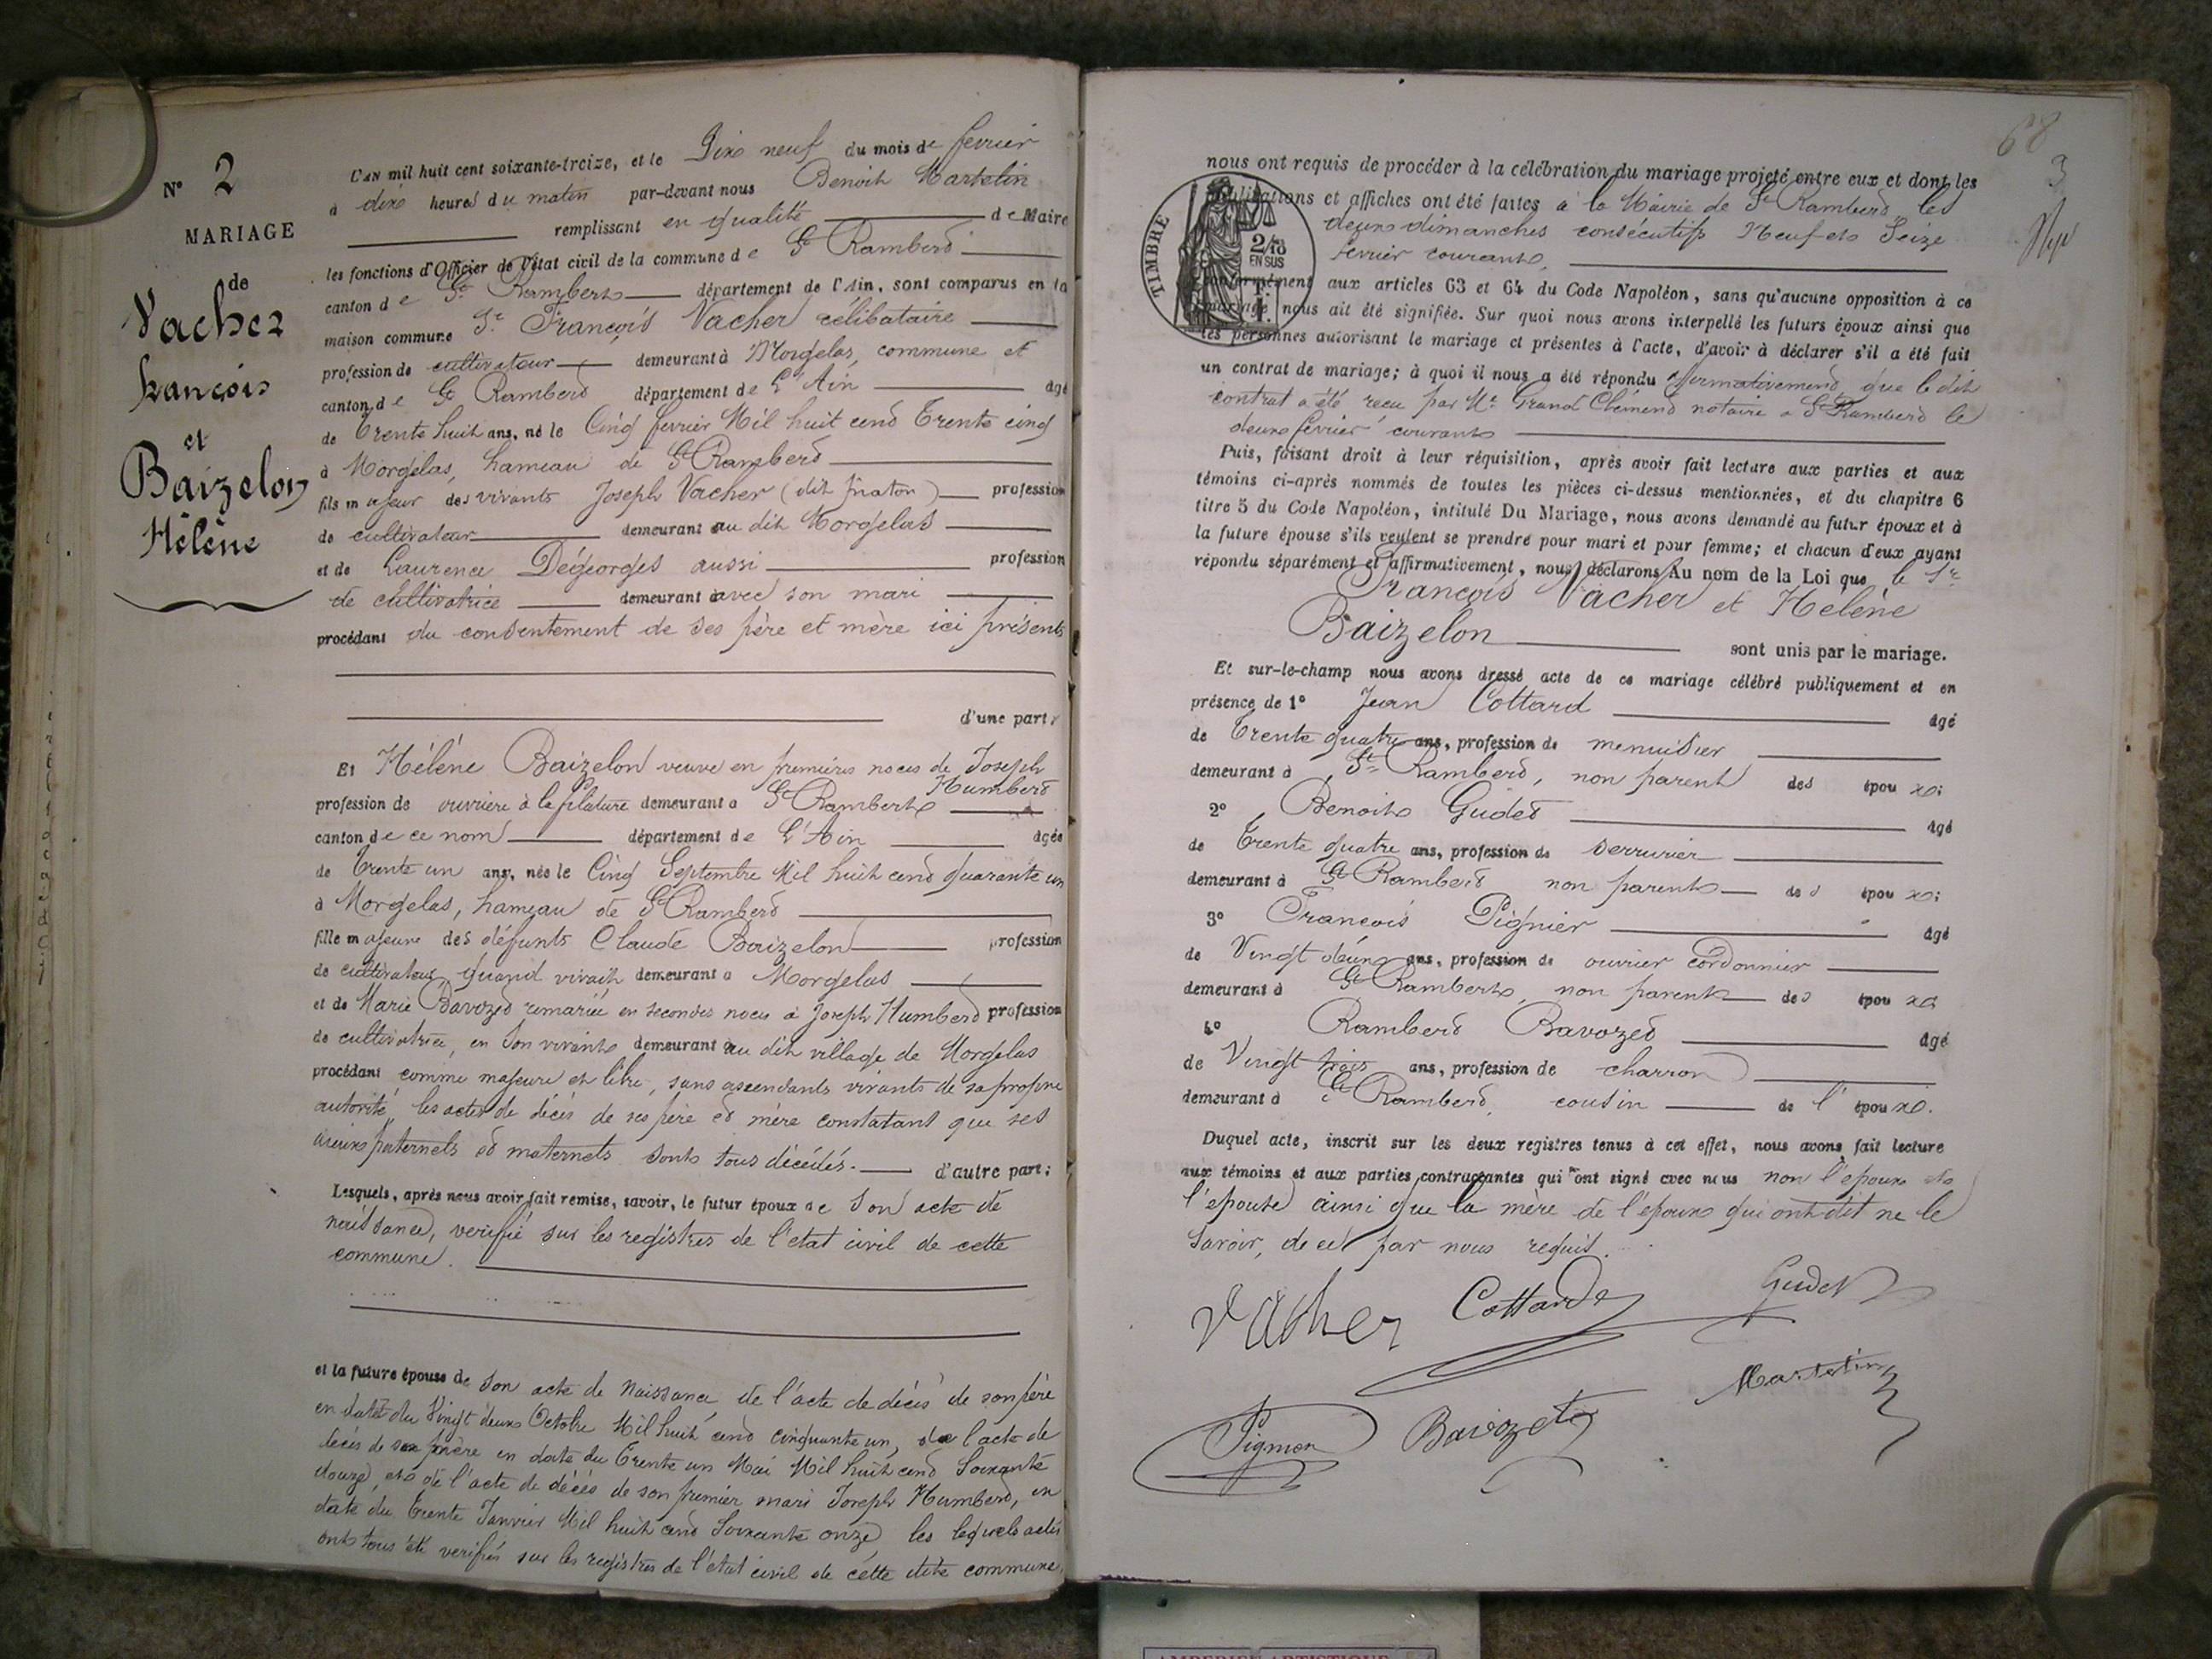 N° 2
MARIAGE
de
Vacher
françois
et
Baizelon
Hélène
L'AN mil huit cent soixante-treize, et le Dix neuf du mois de fevrier
à dix heures du matin par-devant nous Benoit Martelin
remplissant en qualité de Maire
les fonctions d'Officier de l'état civil de la commune de St Rambert
canton de St Rambert département de l'Ain, sont comparus en la
maison commune Sr François Vacher célibataire
profession de cultivateur demeurant à Morgelas, commune et
canton de St Rambert département de L'Ain âgé
de Trente huit ans, né le Cinq fevrier Mil huit cent Trente cinq
à Morgelas, hameau de St Rambert
fils majeur des vivants Joseph Vacher (dit finaton) profession
de cultivateur demeurant au dit Morgelas
et de Laurence Dégeorges aussi profession
de cultivatrice demeurant avec son mari
procédant du consentement de ses père et mère ici présents
d'une part
Et Hélène Baizelon veuve en premières noces de Joseph
Humbert
profession de ouvrière à la filature demeurant à St Rambert
canton de ce nom département de L'Ain âgée
de Trente un ans, née le Cinq Septembre Mil huit cent quarante un
à Morgelas, hameau de St Rambert
fille majeure des défunts Claude Baizelon profession
de cultivateur quand vivait demeurant à Morgelas
et de Marie Bavozet remariée en secondes noces à Joseph Humbert profession
de cultivatrice, en son vivant demeurant au dit village de Morgelas
procédant comme majeure et libre, sans ascendants vivants de sa propre
autorité, les actes de décès de ses père et mère constatant que ses
aïeux paternels et maternels sont tous décédés. d'autre part;
Lesquels, après nous avoir fait remise, savoir, le futur époux de son acte de
naissance, verifié sur les registres de l'etat civil de cette
commune.
et la future épouse de son acte de naissance de l'acte de décès de son père
en date du Vingt deux Octobre Mil huit cent cinquante un, de l'acte de
décès de sa mère en date du Trente un Mai Mil huit cent Soixante
douze, et de l'acte de décès de son premier mari Joseph Humbert, en
date du Trente Janvier Mil huit cent Soixante onze les lequels actes
ont tous été verifiés sur les registres de l'état civil de cette dite commune.
68
3
nous ont requis de procéder à la célébration du mariage projeté entre eux et dont les
publications et affiches ont été faites à la Mairie de St Rambert, les
deux dimanches consécutifs Neuf et Seize
fevrier courant,
conformément aux articles 63 et 64 du Code Napoléon, sans qu'aucune opposition à ce
mariage nous ait été signifiée. Sur quoi nous avons interpellé les futurs époux ainsi que
les personnes autorisant le mariage et présentes à l'acte, d'avoir à déclarer s'il a été fait
un contrat de mariage; à quoi il nous a été répondu affirmativement que le dit
contrat a été reçu par Me Grand Clément notaire à St Rambert le
deux fevrier courant
TIMBRE
2/10
EN SUS
Puis, faisant droit à leur réquisition, après avoir fait lecture aux parties et aux
témoins ci-après nommés de toutes les pièces ci-dessus mentionnées, et du chapitre 6
titre 5 du Code Napoléon, intitulé Du Mariage, nous avons demandé au futur époux et à
la future épouse s'ils veulent se prendre pour mari et pour femme; et chacun d'eux ayant
répondu séparément et affirmativement, nous déclarons Au nom de la Loi que le Sr
François Vacher et Hélène
Baizelon sont unis par le mariage.
Et sur-le-champ nous avons dressé acte de ce mariage célébré publiquement et en
présence de 1° Jean Cottard âgé
de Trente quatre ans, profession de menuisier
demeurant à St Rambert, non parent des époux;
2° Benoit Gudet âgé
de Trente quatre ans, profession de serrurier
demeurant à St Rambert non parent des époux;
3° François Pignier âgé
de Vingt deux ans, profession de ouvrier cordonnier
demeurant à St Rambert, non parent des époux
4° Rambert Bavozet âgé
de Vingt trois ans, profession de charron
demeurant à St Rambert, cousin de l'époux.
Duquel acte, inscrit sur les deux registres tenus à cet effet, nous avons fait lecture
aux témoins et aux parties contractantes qui ont signé avec nous non l'époux et
l'épouse ainsi que la mère de l'époux qui ont dit ne le
savoir, de ce par nous requis.
Vacher Cottard Gudet
Martelin
Pignier Bavozet